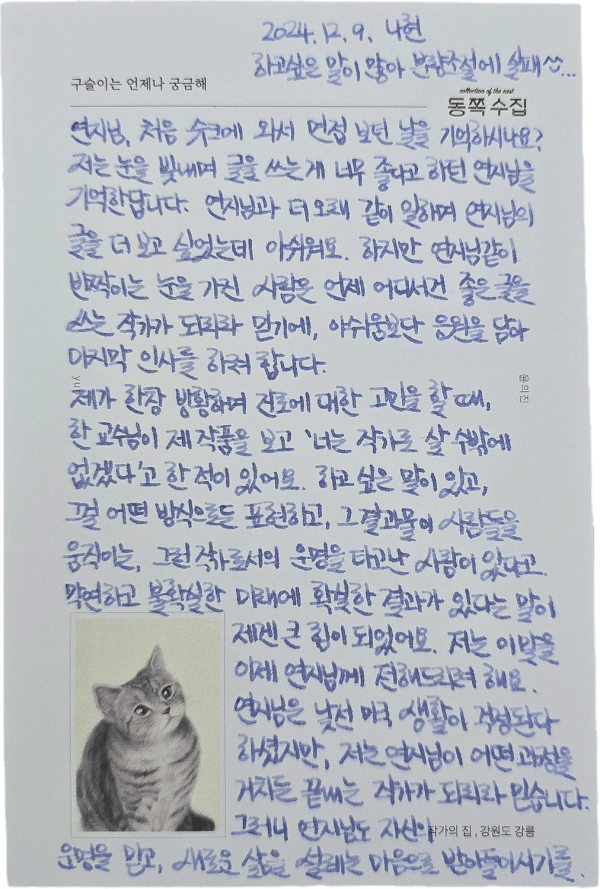 2024.12.9. 나현
하고싶은 말이 많아 분량조절에 실패^^...
구슬이는 언제나 궁금해
collection of the east
동쪽수집
연지님, 처음 슈크에 와서 면접 보던 날을 기억하시나요?
저는 눈을 빛내며 글을 쓰는게 너무 좋다고 하던 연지님을
기억한답니다. 연지님과 더 오래 같이 일하며 연지님의
글을 더 보고 싶었는데 아쉬워요. 하지만 연지님같이
반짝이는 눈을 가진 사람은 언제 어디서건 좋은 글을
쓰는 작가가 되리라 믿기에, 아쉬움보단 응원을 담아
마지막 인사를 하려 합니다.
윤의진
제가 한창 방황하며 진로에 대한 고민을 할 때,
한 교수님이 제 작품을 보고 '너는 작가로 살 수밖에
없겠다'고 한 적이 있어요. 하고 싶은 말이 있고,
그걸 어떤 방식으로든 표현하고, 그 결과물이 사람들을
움직이는, 그런 작가로서의 운명을 타고난 사람이 있다고.
막연하고 불확실한 미래에 확실한 결과가 있다는 말이
제겐 큰 힘이 되었어요. 저는 이 말을
이제 연지님께 전해드리려 해요.
연지님은 낯선 미국 생활이 걱정된다
하셨지만, 저는 연지님이 어떤 과정을
거치든 끝내는 작가가 되리라 믿습니다.
그러니 연지님도 자신의
작가의 집, 강원도 강릉
운명을 믿고, 새로운 삶을 설레는 마음으로 받아들이시기를.